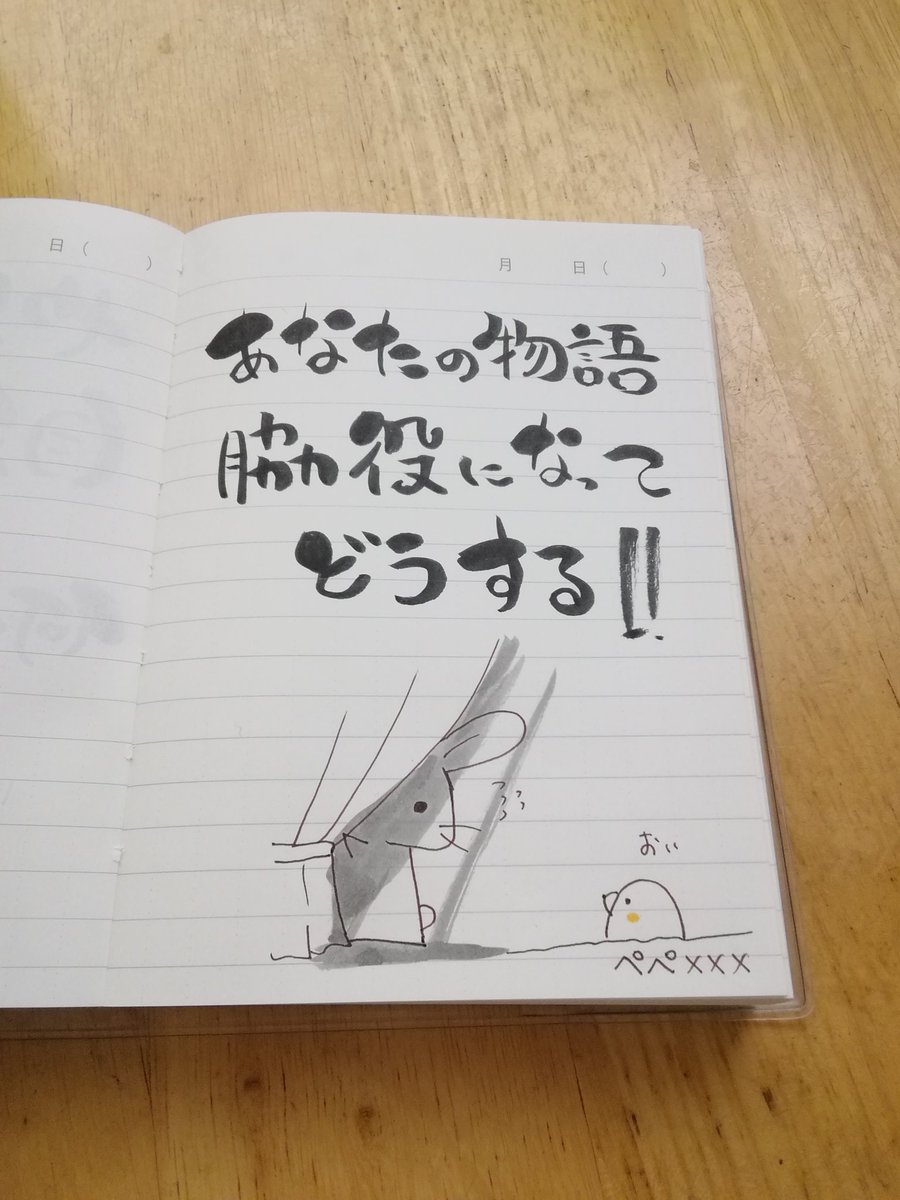 日（　　）
月　　日（　　）
あなたの物語
脇役になって
どうする!!
おい
ペペ×××